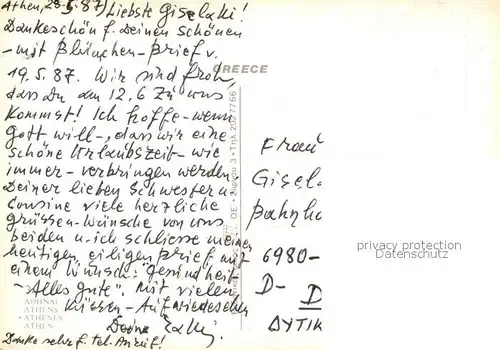 Athen, 28.5.87) Liebste Giselaki!
Dankeschön f. Deinen schönen
-mit Blümchen-Brief v.
19.5.87. Wir sind froh,
dass Du am 12.6 zu uns
kommst! Ich hoffe-wenn
Gott will-, dass wir eine
schöne Urlaubszeit-wie
immer-verbringen werden.
Deiner lieben Schwester u.
Cousine viele herzliche
grüssen-Wünsche von uns
beiden u. ich schliesse meinen
heutigen, eiligen Brief mit
einem Wunsch: "Gesundheit-
-Alles gute". Mit vielen
Küssen-Aufwiedersehen
Danke sehr f. tel. Anruf!
GREECE
ΑΘΗΝΑΙ
ATHENS
ATHENES
ATHEN
3 • Τηλ. 2027766
Frau
Gisel
Bahnho
6980-
D-
ΔΥΤΙΚ
privacy protection
Datenschutz